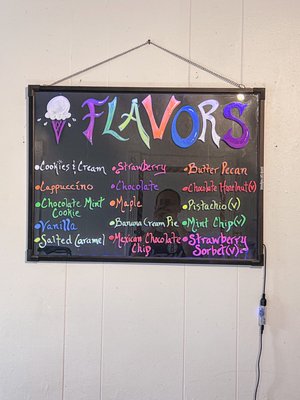 FLAVORS
Cookies & Cream
Cappuccino
Chocolate Mint
Cookie
Vanilla
Salted Caramel
Strawberry
Chocolate
Maple
Banana Cream Pie
Mexican Chocolate
Chip
Butter Pecan
Chocolate Hazelnut (v)
Pistachio (v)
Mint Chip (v)
Strawberry
Sorbet (v)